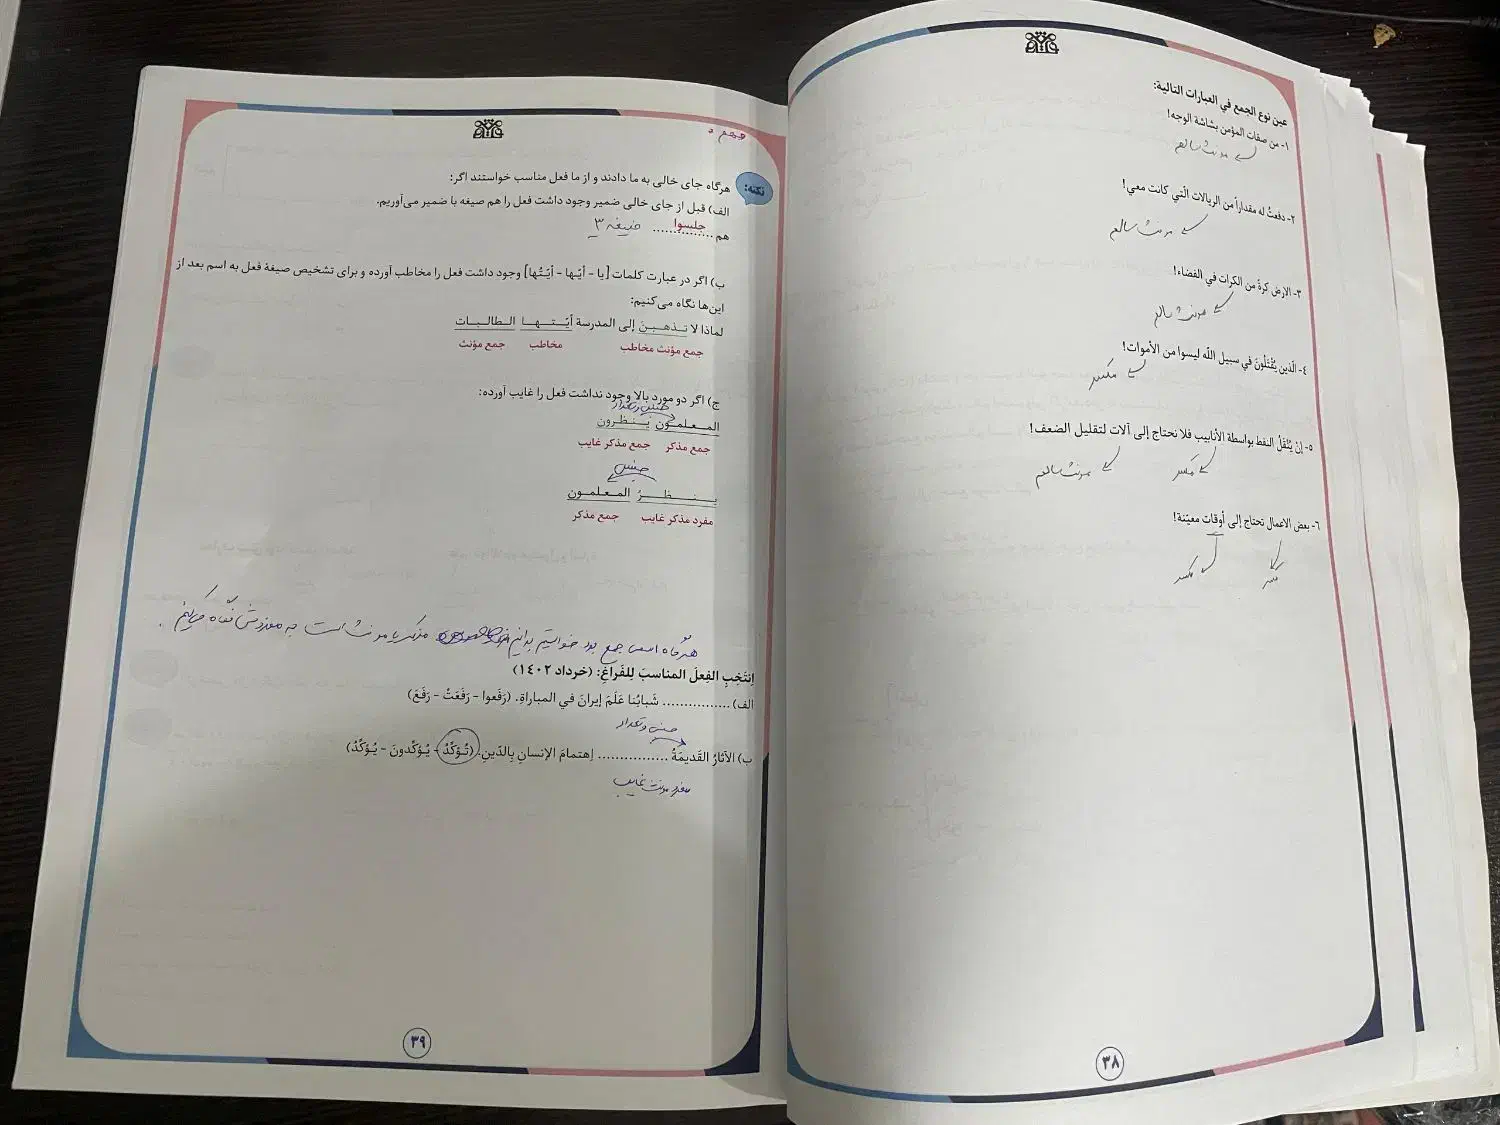 عين نوع الجمع في العبارات التالية:
١- من صفات المؤمن بشاشة الوجه!
مونث سالم
٢- دفعتُ له مقداراً من الريالات الّتي كانت معي!
مونث سالم
٣- الارض كرةٌ من الكرات في الفضاء!
مونث سالم
٤- الّذين يُقْتَلونَ في سبيل اللّه ليسوا من الأموات!
مکسر
٥- إنْ يُنْقَلُ النفط بواسطة الأنابيب فلا نحتاج إلى آلات لتقليل الضعف!
مکسر مونث سالم
٦- بعض الاعمال تحتاج إلى أوقات معيّنة!
مکسر مکسر
٣٨
مهم :
نکته: هرگاه جای خالی به ما دادند و از ما فعل مناسب خواستند اگر:
الف) قبل از جای خالی ضمیر وجود داشت فعل را هم صیغه با ضمیر می‌آوریم.
هم ...جلسوا... صیغه ۳
ب) اگر در عبارت کلمات [یا - أیّها - أیّتُها] وجود داشت فعل را مخاطب آورده و برای تشخیص صیغهٔ فعل به اسم بعد از
این‌ها نگاه می‌کنیم:
لماذا لا تـذهبـنَ إلى المدرسة أيّـتـهـا الـطالـبـات
جمع مؤنث مخاطب مخاطب جمع مؤنث
ج) اگر دو مورد بالا وجود نداشت فعل را غایب آورده:
جنس و تعداد
المـعـلمـون يـنـظرون
جمع مذکر جمع مذکر غایب
جنس
يـنـظـرُ المـعـلمـون
مفرد مذکر غایب جمع مذکر
هرگاه اسمی جمع بود خواستیم بدانیم مذکر یا مونث است به مفردش نگاه میکنیم .
اِنتَخِبِ الفِعلَ المناسبَ لِلفَراغِ: (خرداد ١٤٠٢)
الف) ................ شَبابُنا عَلَمَ إيرانَ في المباراةِ. (رَفَعوا - رَفَعَتْ - رَفَعَ)
جنس و تعداد
ب) الآثارُ القَديمَةُ ................ اِهتمامَ الإنسانِ بِالدّينِ. (تُـؤكِّدُ - يُـؤكِّدونَ - يُـؤكِّدُ)
مفرد مونث غایب
٣٩